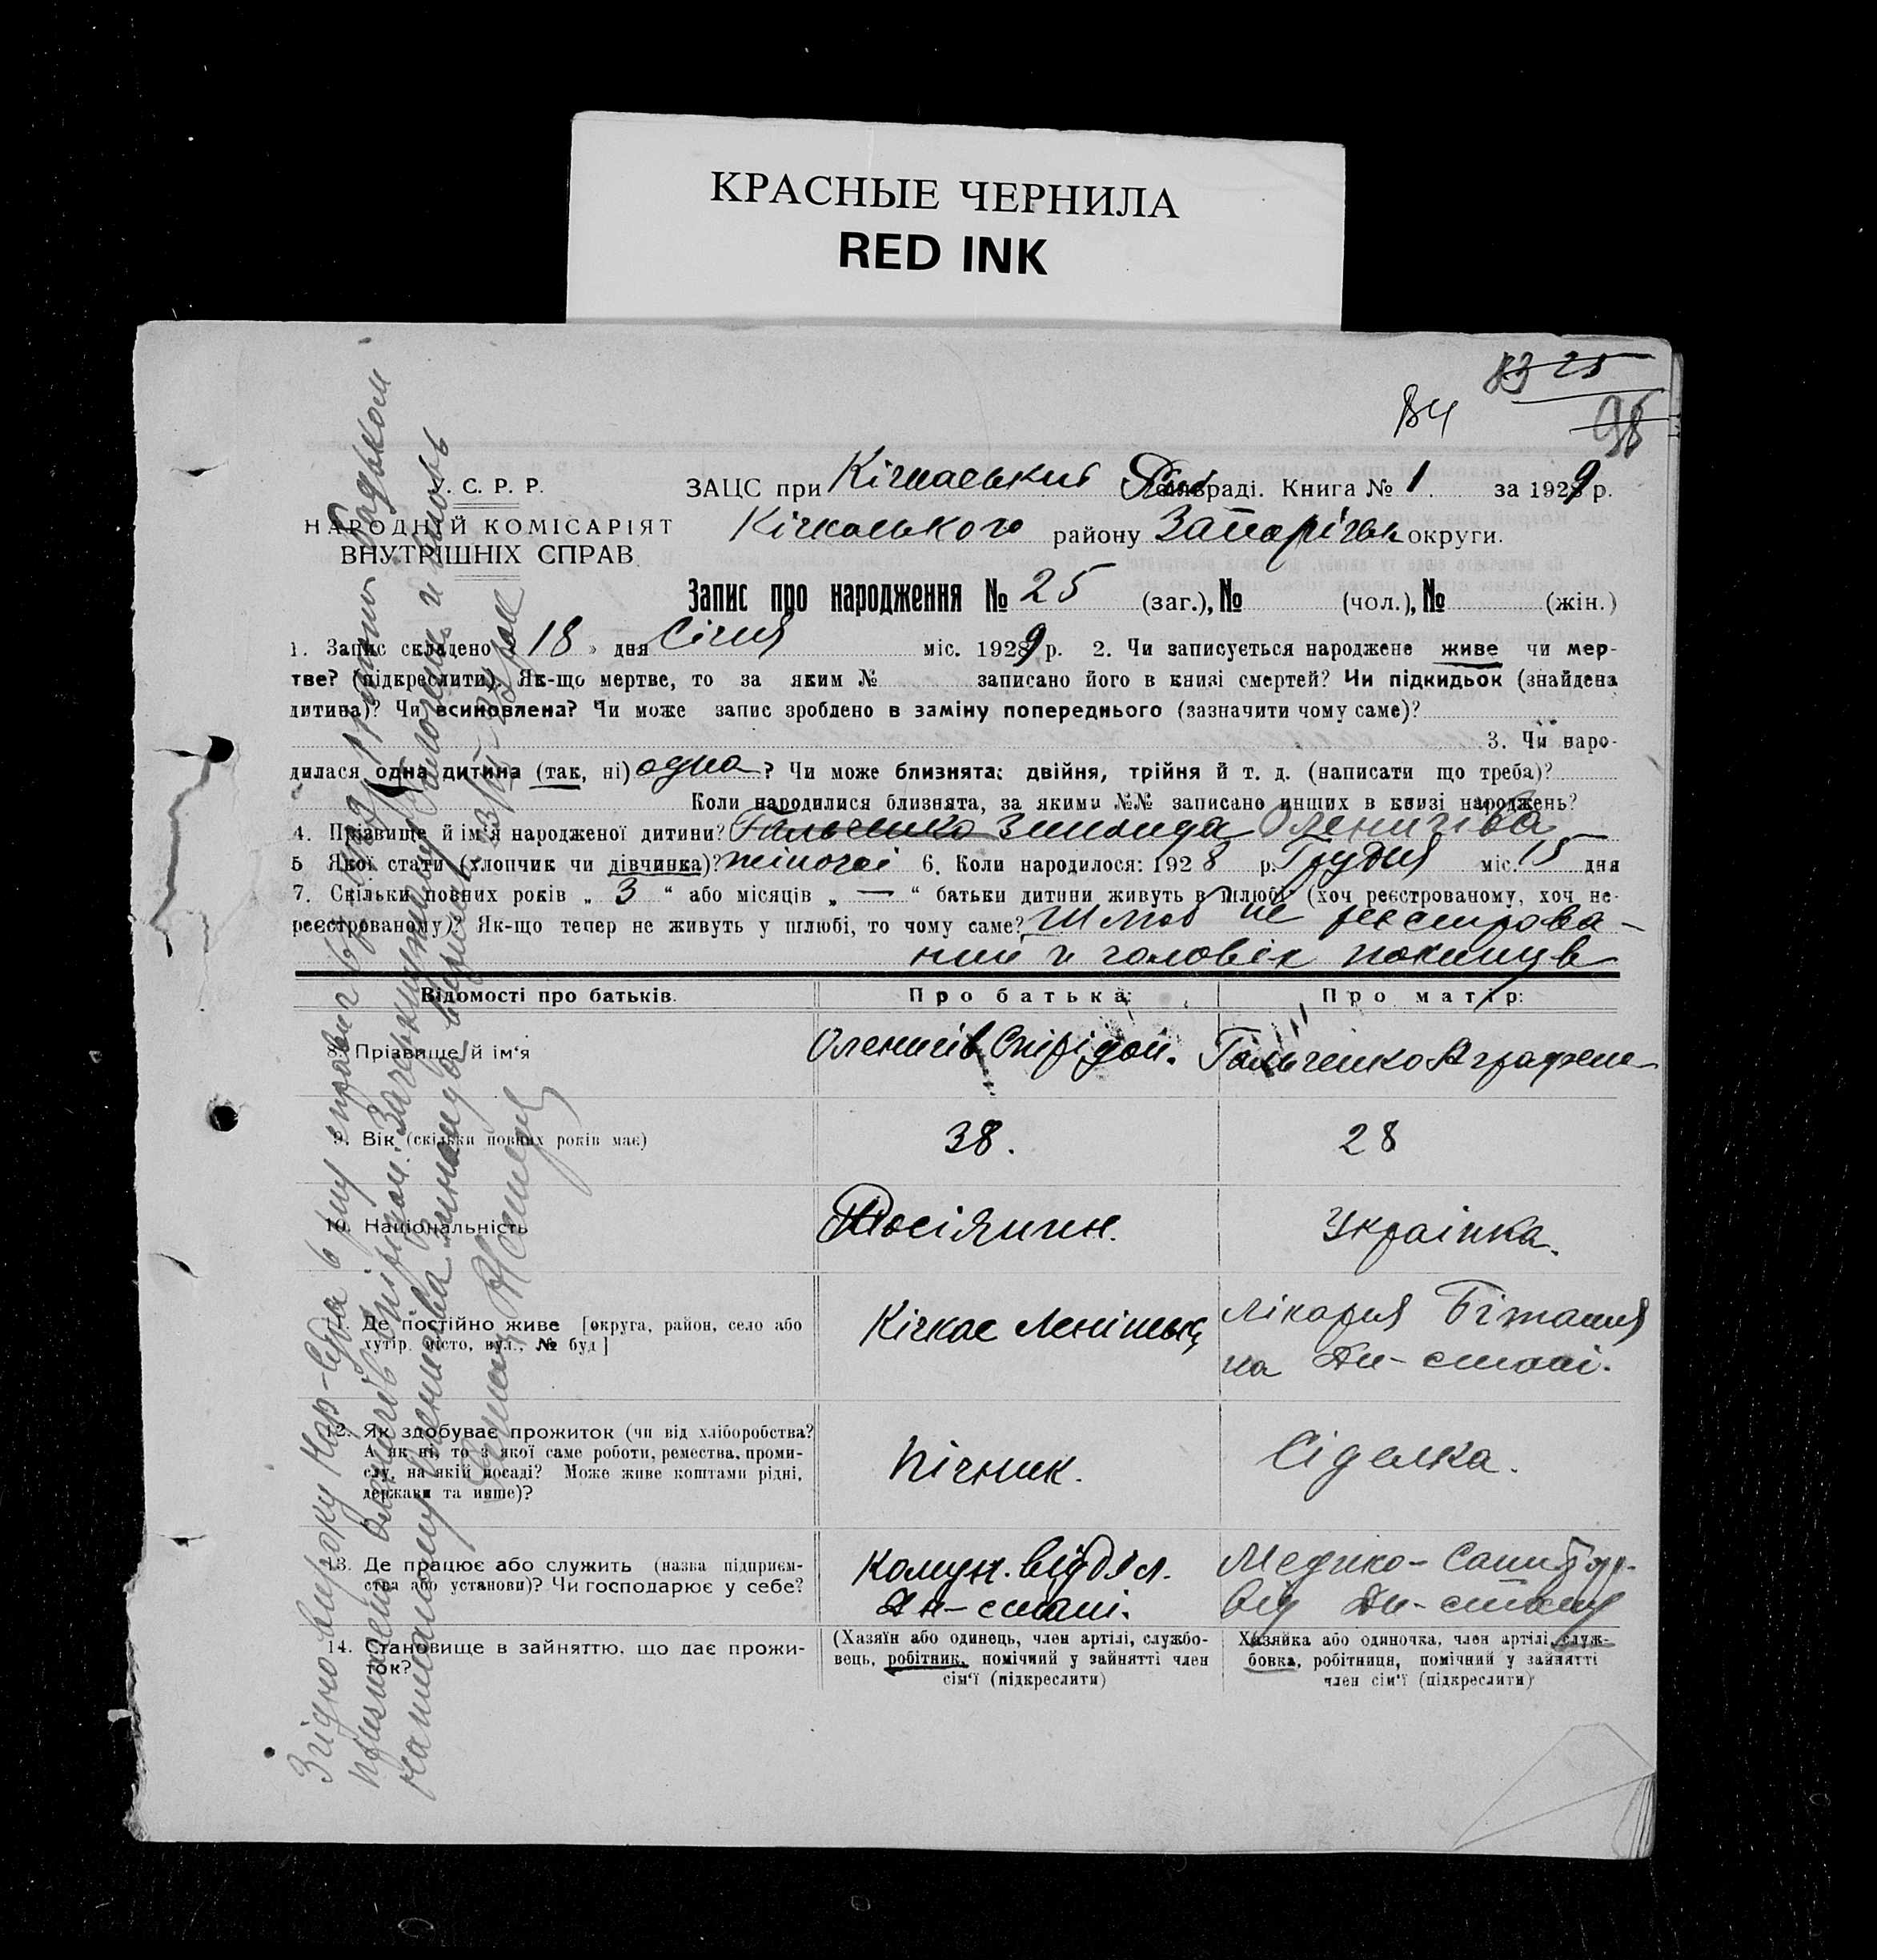 КРАСНЫЕ ЧЕРНИЛА
RED INK
83 25
84
98
У. С. Р. Р.
НАРОДНІЙ КОМІСАРІЯТ
ВНУТРІШНІХ СПРАВ
ЗАЦС при Кічкаський раді. Книга № 1 за 1929 р.
Кічкаського району Запоріськ округи.
Запис про народження № 25 (заг.), № (чол.), № (жін.)
1. Запис складено „ 18 » дня Січня міс. 1929 р. 2. Чи записується народжене живе чи мер-
тве? (підкреслити). Як-що мертве, то за яким № записано його в книзі смертей? Чи підкидьок (знайдена
дитина)? Чи всиновлена? Чи може запис зроблено в заміну попереднього (зазначити чому саме)?
3. Чи наро-
дилася одна дитина (так, ні) одна? Чи може близнята: двійня, трійня й т. д. (написати що треба)?
Коли народилися близнята, за якими №№ записано инших в книзі народжень?
4. Прізвище й ім'я народженої дитини? Гальченко Зинаида Оленичіва
5 Якої стати (хлопчик чи дівчинка)? жіночої 6. Коли народилося: 1928 р. Грудня міс. 15 дня
7. Скільки повних років „ 3 “ або місяців „ — “ батьки дитини живуть в шлюбі (хоч реєстрованому, хоч не-
реєстрованому)? Як-що тепер не живуть у шлюбі, то чому саме? Шлюб не реєстрова-
ний и чоловік покинув
Відомості про батьків. Про батька: Про матір:
8. Прізвище й ім‘я Оленичів Спірідон. Гальченко Аграфена
9. Вік (скільки повних років має) 38. 28
10. Національність Росіянин. Українка.
11. Де постійно живе [округа, район, село або
хутір, місто, вул., № буд] Кічкас
Лікарня
на Дн-стані.
12. Як здобуває прожиток (чи від хліборобства?
А як ні, то з якої саме роботи, ремества, проми-
слу, на якій посаді? Може живе коштами рідні,
держави та инше)? Пічник. Сіделка.
13. Де працює або служить (назва підприєм-
ства або установи)? Чи господарює у себе? Комун. відділ. Дн-стані.
Медико-Сані
від Дн-стану
14. Становище в зайняттю, що дає прожи-
ток?
(Хазяїн або одинець, член артілі, службо-
вець, робітник, помічний у зайнятті член
сім‘ї (підкреслити)
Хазяйка або одиночка, член артілі, служ-
бовка, робітниця, помічний у зайнятті
член сім‘ї (підкреслити)
Згідно вироку Нар-Суда 6 р. батьком
Спірідон.
Оленичіва Зинаида